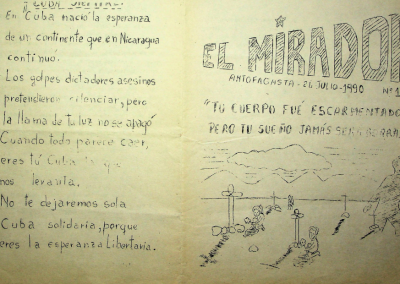 "CUBA
En Cuba nació la esperanza
de un continente que en Nicaragua
continuo.
Los golpes dictadores asesinos
pretendieron silenciar, pero
la llama de tu luz no se apagó
Cuando todo parece caer,
eres tú Cuba la que
nos levanta.
No te dejaremos sola
Cuba solidaria, porque
eres la esperanza Libertaria.
EL MIRADOR
ANTOFAGASTA - 26 JULIO - 1990 Nº1
"TU CUERPO FUÉ ESCARMENTADO
PERO TU SUEÑO JAMÁS SERÁ